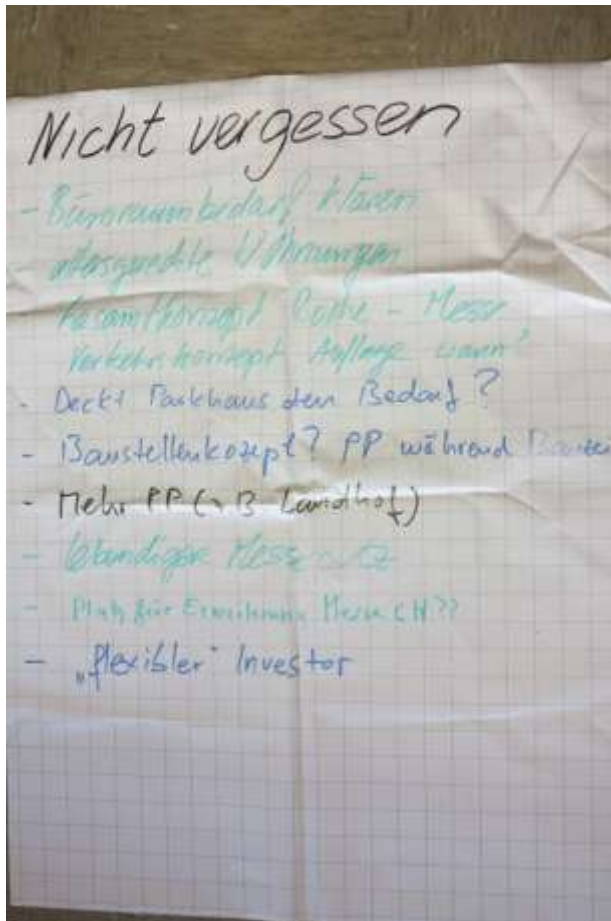 Nicht vergessen
- Büroraumbedarf klären
- altersgerechte Wohnungen
Gesamtkonzept Roche - Messe
Verkehrskonzept Auflage wann?
- Deckt Parkhaus den Bedarf?
- Baustellenkozept? PP während Bauzeit
- Mehr PP (z B Landhof)
- lebendiger Messeplatz
- Platz für Erweiterung Messe CH??
- „flexibler" Investor